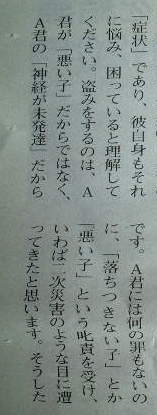 「症状」であり、彼自身もそれ
に悩み、困っていると理解して
ください。盗みをするのは、A
君が「悪い子」だからではなく、
A君の「神経が未発達」だから
です。A君には何の罪もないの
に、「落ちつきない子」とか
「悪い子」という叱責を受け、
いわば二次災害のような目に遭
ってきたと思います。そうした